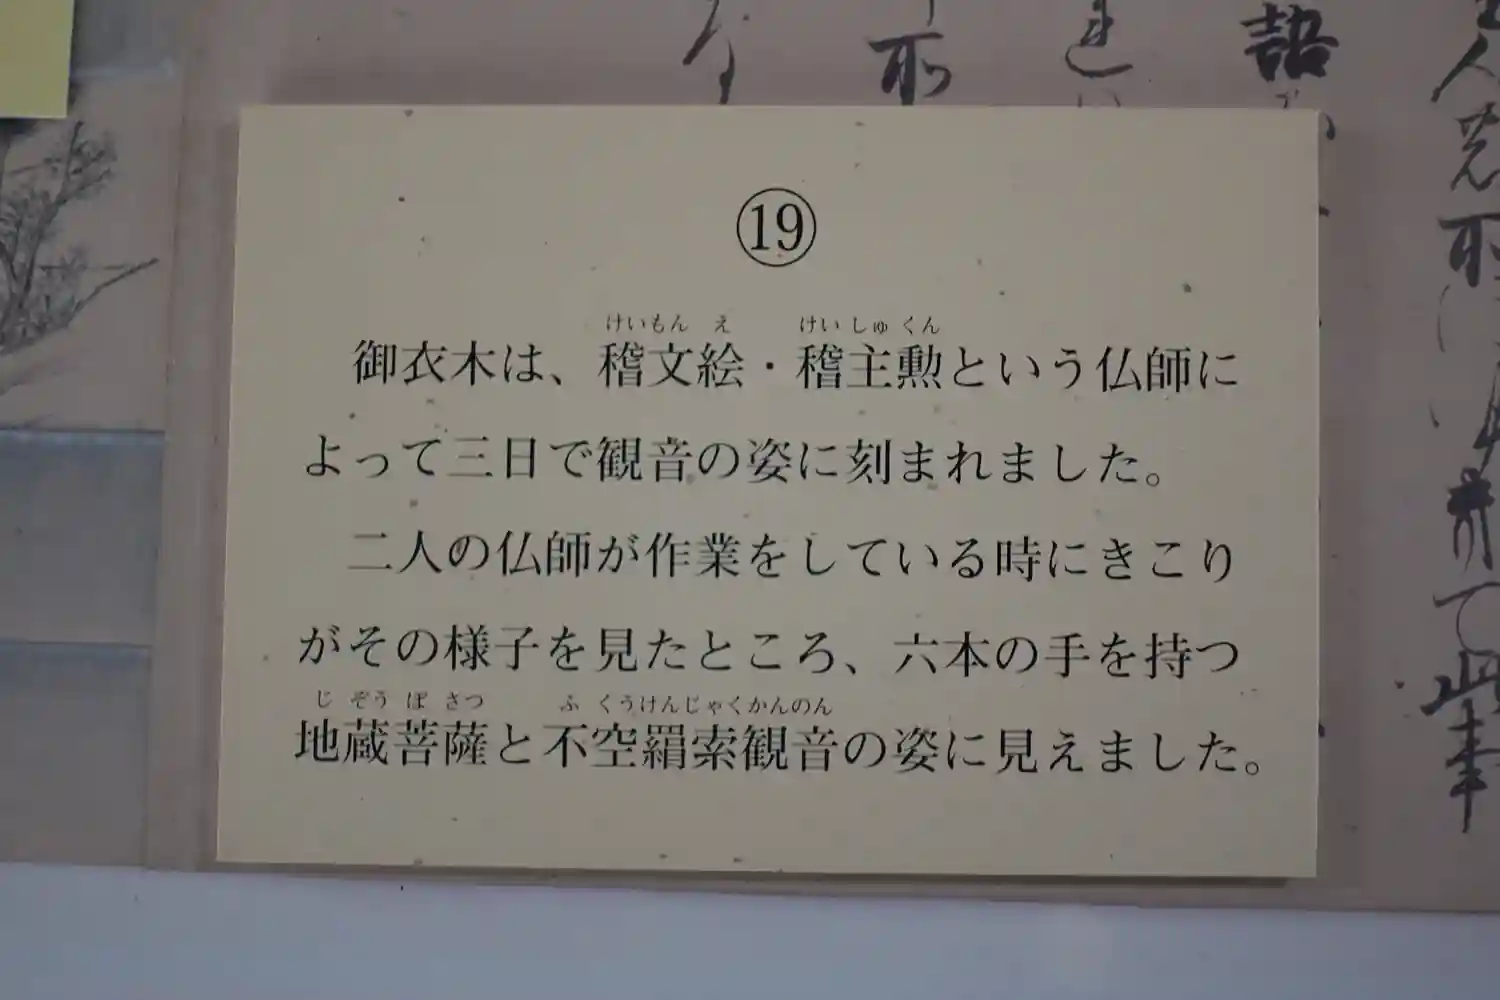 ⑲
御衣木は、稽文絵・稽主勲という仏師に
よって三日で観音の姿に刻まれました。
二人の仏師が作業をしている時にきこり
がその様子を見たところ、六本の手を持つ
地蔵菩薩と不空羂索観音の姿に見えました。
けいもん え けい しゅ くん
じ ぞう ぼ さつ ふ くうけんじゃくかんのん